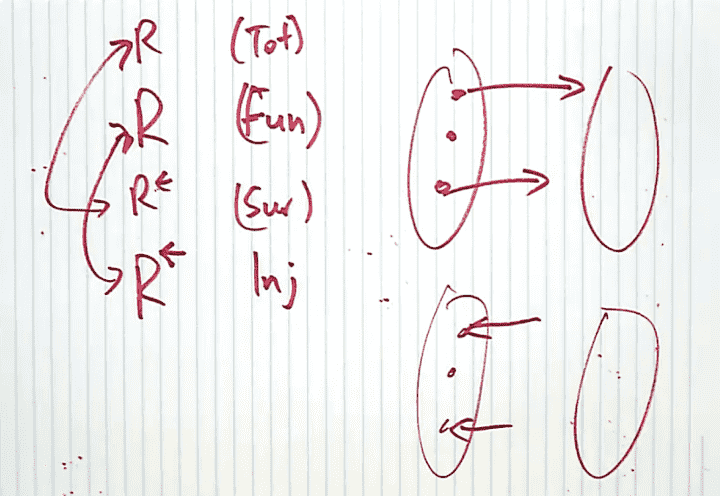 R (Tot)
R (Fun)
R← (Sur)
R← Inj